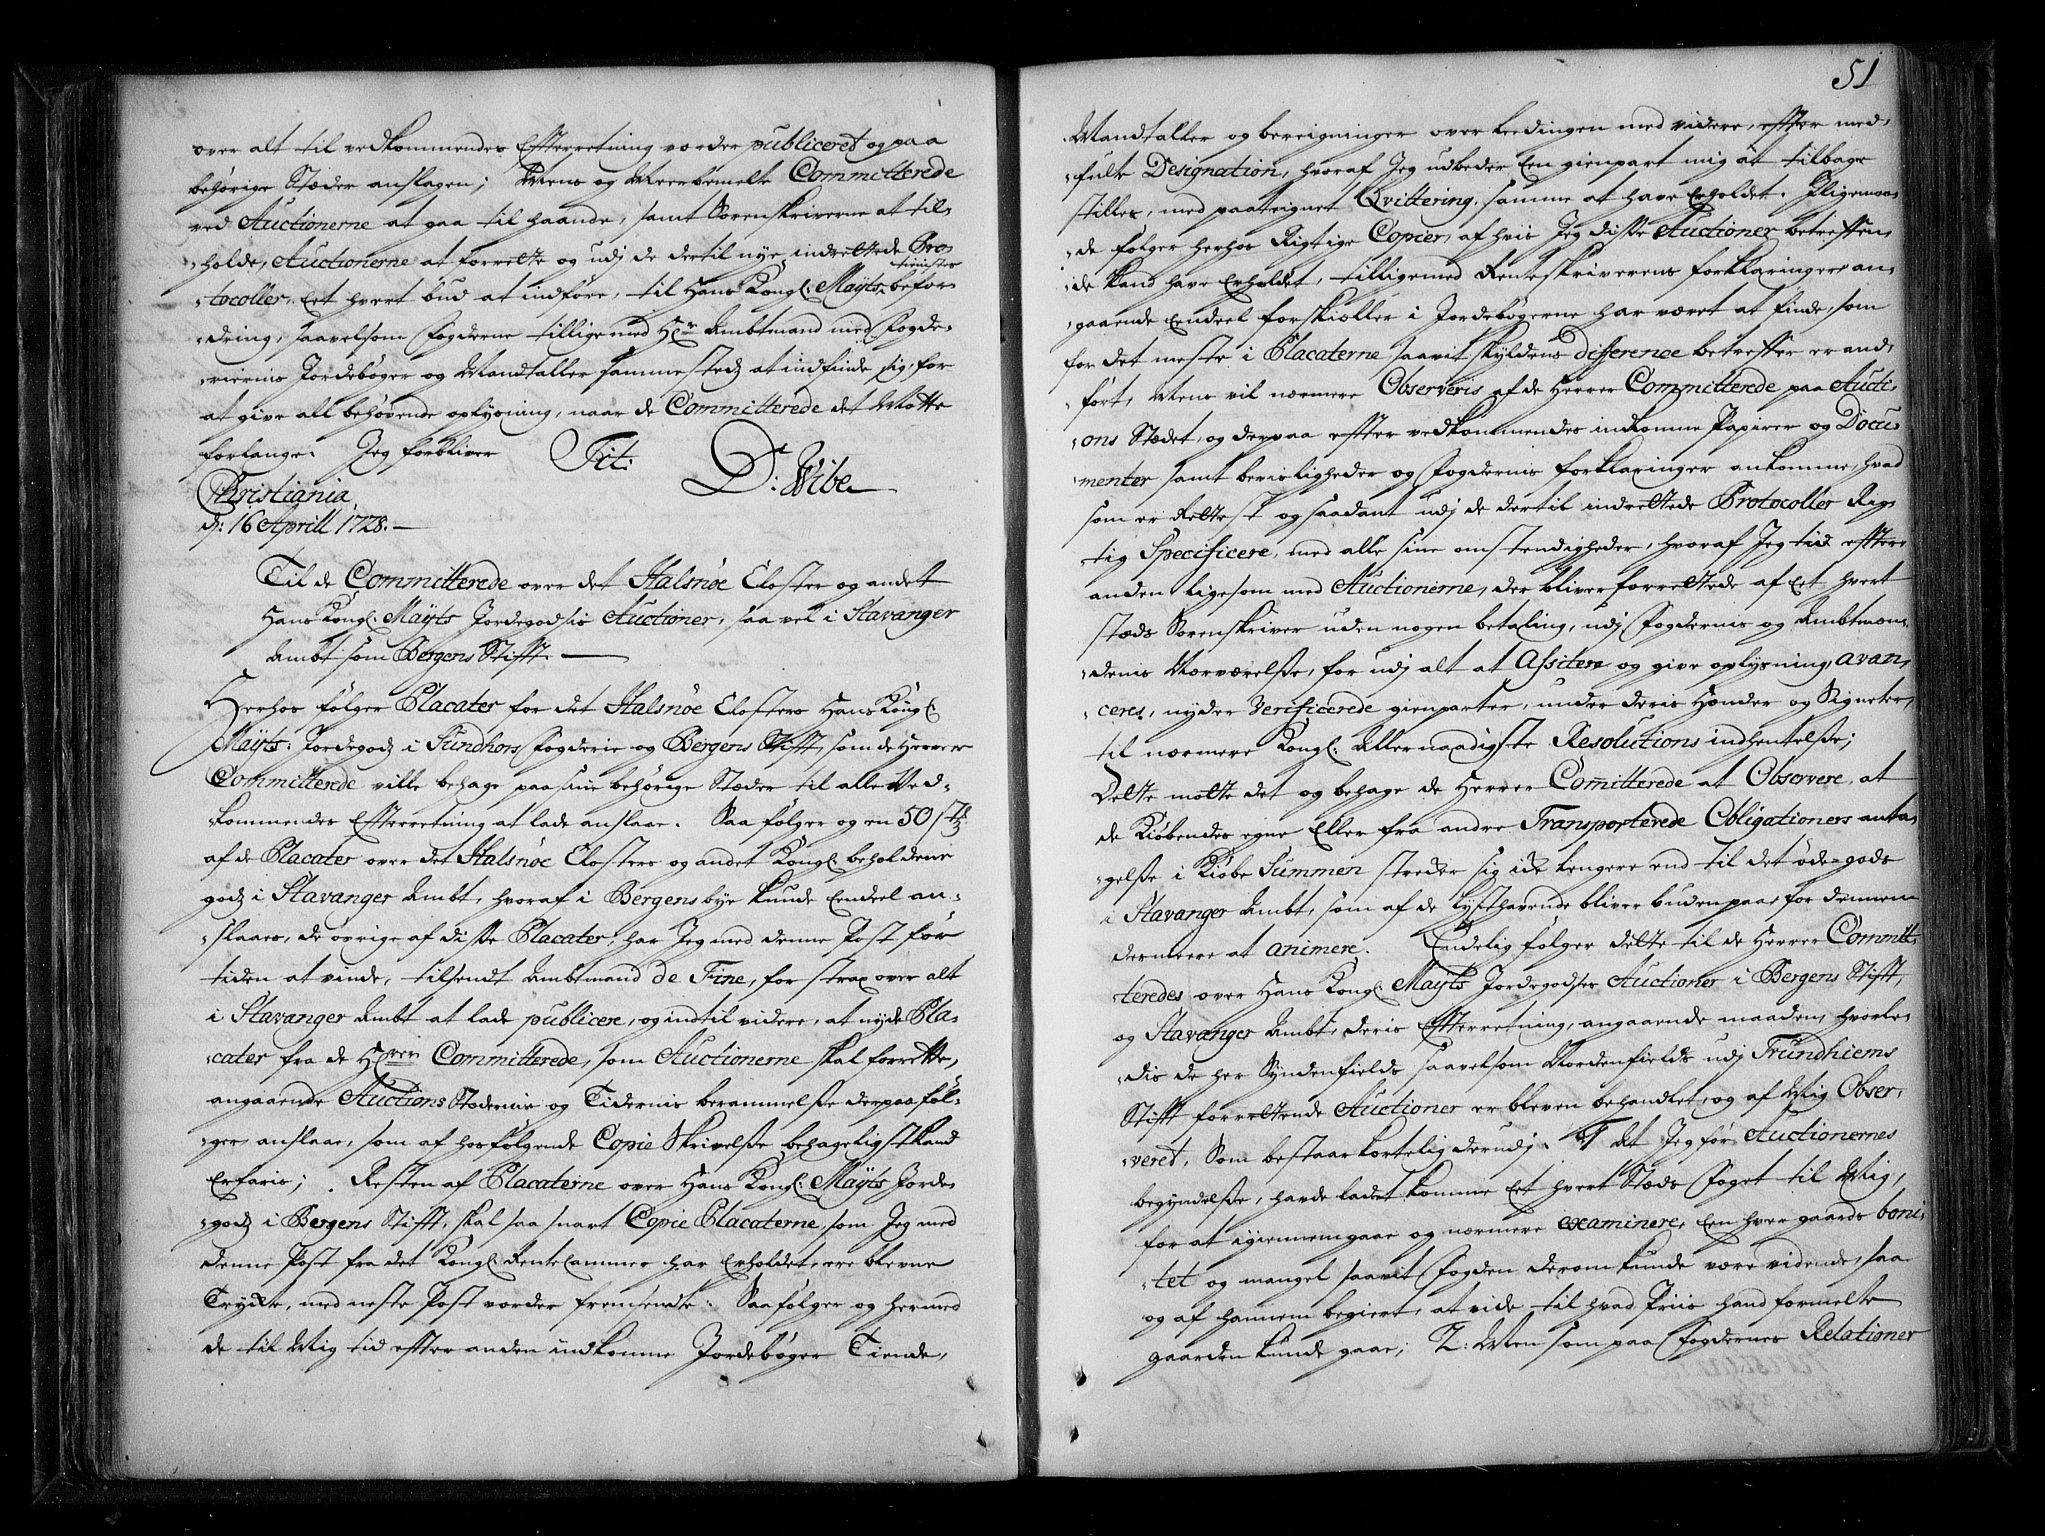 over alt til vedkommendes Effterretning vorder publiceret og paa
behörige Stæder anslagen; Mens og Meerbemelte Committerede
ved Auctionerne at gaa til haande, samt Sorenskriverne at til-
-holde, Auctionerne at forrette og udj de dertil nye indrettede Pro-
-tocoller, Eet hvert bud at indföre, til Hans Kongl: Mayts tienistes befor-
-dring, saavelsom Fogderne tillige med Hr Ambtmand med Fogde-
-riernis Jordebøger og Mandtaller sammesteds at indfinde sig, for
at give all behøvende oplysning, naar de Committerede det Motte
forlange. Jeg forbliver Tit: D: Wibe
Christiania
d: 16 Aprill 1728.
Til de Committerede over det Halsnøe Closter og andet
Hans Kongl: Mayts Jordegodsis Auctioner, saa vel i Stavanger
Ambt som Bergens Stifft.
Herhos følger Placater for det Halsnöe Closters Hans Kongl:
Mayts: Jordegods i Sundhors Fogderie og Bergens Stifft, som de Herrer
Committerede ville behage paa sine behörige Stæder til alle Ved-
-kommendes Effterretning at lade anslaae. Saa følger og en 50 stk
af de Placater over det Halsnöe Closters og andet Kongl: beholdene
gods i Stavanger Ambt, hvoraf i Bergens bye kunde Eendeel an-
-slaaes, de övrige af disse Placater, har Jeg med denne Post før
tiden at vinde, tilsendt Ambtmand de Fine, for strax over alt
i Stavanger Ambt at lade publicere, og indtil videre, at nyde Pla-
-cater fra de Hrrer Committerede, som Auctionerne skal forrette,
angaaende Auctions Stædernis og Tidernis berammelsse derpaa föl-
-ger anslaae, som af hosfølgende Copie Skrivelsse behageligst kand
Erfaris; Resten af Placaterne over Hans Kongl: Mayts Jorde-
-gods i Bergens Stifft, skal saa snart Copie Placaterne, som Jeg med
denne Post fra det Kongl: Rente Cammer har Erholdet, ere blevne
Tryckte, med neste Post vorder fremsendte. Saa følger og hermed
de til Mig tid effter anden indkomne Jordebøger Tiende,
51
Mandtaller og bereigninger over Leedingen med videre, effter med-
-fulte Designation, hvoraf Jeg udbeder Een gienpart mig at tilbage
stilles, med paateignet Qvittering, samme at have Erholdet. Iligemaa-
-de følger herhos Rigtige Copier, af hvis Jeg disse Auctioner betreffen-
-de kand have Erholdet, tilligemed Renteskriverens forklaringer an-
-gaaende Eendeel forskiæller i Jordebøgerne har været at finde, som
for det meste i Placaterne saavit skyldens difference betreffer er and-
fört, Mens vil nærmere Observeris af de Herrer Committerede paa Aucti-
-ons Stædet, og derpaa effter vedkommendes indkomne Papirer og Docu-
-menter samt bevisligheder og Fogdernis forklaringer ankomme, hvad
som er Rettest og saadant udj de dertil indrettede Protocoller Rig-
tig Specificere, med alle sine omstendigheder, hvoraf Jeg tid effter
anden ligesom med Auctionerne, der bliver forrettede af Eet hvert
stæds Sorenskriver uden nogen betaling, udj Fogdernis og Ambtmæn-
-denis Nærværelsse, for udj alt at Assistere og give oplysning, avan-
-ceres, nyder Verificerede gienparter, under deris Hænder og Signeter,
til nærmere Kongl: Allernaadigste Resolutions indhentelsse;
Dette motte det og behage de Herrer Committerede at Observere, at
de Kiøbendes egne Eller fra andre Transporterede Obligationers anta-
-gelsse i Kiøbe Summen strecker sig icke lengere end til det øde-gods
i Stavanger Ambt, som af de Lysthavende bliver buden paa, for dennem
desmeere at animere. Endelig følger dette til de Herrer Commit-
-teredes over Hans Kongl: Mayts Jordegodses Auctioner i Bergens Stifft,
og Stavanger Ambt, deris Effterretning, angaaende maaden, hvorle-
-dis de her Syndenfields saavelsom Nordenfields udj Trundhiems
Stifft forrettende Auctioner er bleven behandlet, og af Mig Obser-
-veret, Som bestaar kortelig derudj. At det Jeg før Auctionernes
begyndelsse, havde ladet komme Eet hvert Stæds Foget til Mig,
for at igiennemgaae og nærmere examinere, Een hver gaards boni-
-tet og mangel saavit Fogden derom kunde være vidende, saa
og af hannem begiert, at vide til hvad Priis hand formeltte
gaarden kunde gaae; 2: Men som paa Fogdernes Relationer